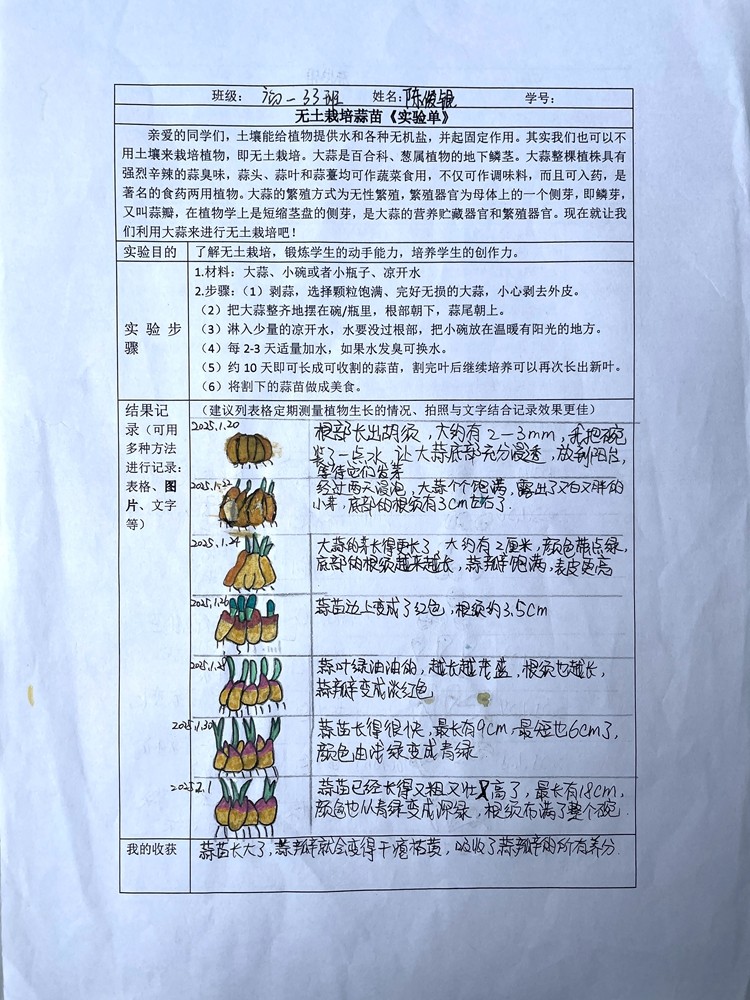 班级： 初一33班 姓名：陈俊锟 学号：
无土栽培蒜苗《实验单》
亲爱的同学们，土壤能给植物提供水和各种无机盐，并起固定作用。其实我们也可以不
用土壤来栽培植物，即无土栽培。大蒜是百合科、葱属植物的地下鳞茎。大蒜整棵植株具有
强烈辛辣的蒜臭味，蒜头、蒜叶和蒜薹均可作蔬菜食用，不仅可作调味料，而且可入药，是
著名的食药两用植物。大蒜的繁殖方式为无性繁殖，繁殖器官为母体上的一个侧芽，即鳞芽，
又叫蒜瓣，在植物学上是短缩茎盘的侧芽，是大蒜的营养贮藏器官和繁殖器官。现在就让我
们利用大蒜来进行无土栽培吧！
实验目的 了解无土栽培，锻炼学生的动手能力，培养学生的创作力。
实验步
骤
1.材料：大蒜、小碗或者小瓶子、凉开水
2.步骤：（1）剥蒜，选择颗粒饱满、完好无损的大蒜，小心剥去外皮。
（2）把大蒜整齐地摆在碗/瓶里，根部朝下，蒜尾朝上。
（3）淋入少量的凉开水，水要没过根部，把小碗放在温暖有阳光的地方。
（4）每 2-3 天适量加水，如果水发臭可换水。
（5）约 10 天即可长成可收割的蒜苗，割完叶后继续培养可以再次长出新叶。
（6）将割下的蒜苗做成美食。
结果记
录（可用
多种方法
进行记录：
表格、图
片、文字
等）
（建议列表格定期测量植物生长的情况、拍照与文字结合记录效果更佳）
2025.1.20
根部长出胡须，大约有2—3mm，我把碗
装了一点水，让大蒜底部充分浸透，放到阳台，
等待它们发芽
2025.1.22
经过两天浸泡，大蒜个个饱满，露出了又白又胖的
小芽，底部的根须有3cm左右了.
2025.1.24
大蒜的芽长得更长了，大约有2厘米，颜色带点绿，
底部的根须越来越长，蒜瓣饱满，表皮更亮
2025.1.26
蒜苗边上变成了红色，根须约3.5cm
2025.1.28
蒜叶绿油油的，越长越茂盛，根须也越长，
蒜瓣变成淡红色
2025.1.30
蒜苗长得很快，最长有9cm 最短也6cm了，
颜色由浅绿变成青绿
2025.2.1
蒜苗已经长得又粗又壮高了，最长有18cm，
颜色也从青绿变成深绿，根须布满了整个碗
我的收获 蒜苗长大了，蒜瓣就会变得干瘪枯黄，吸收了蒜瓣的所有养分.